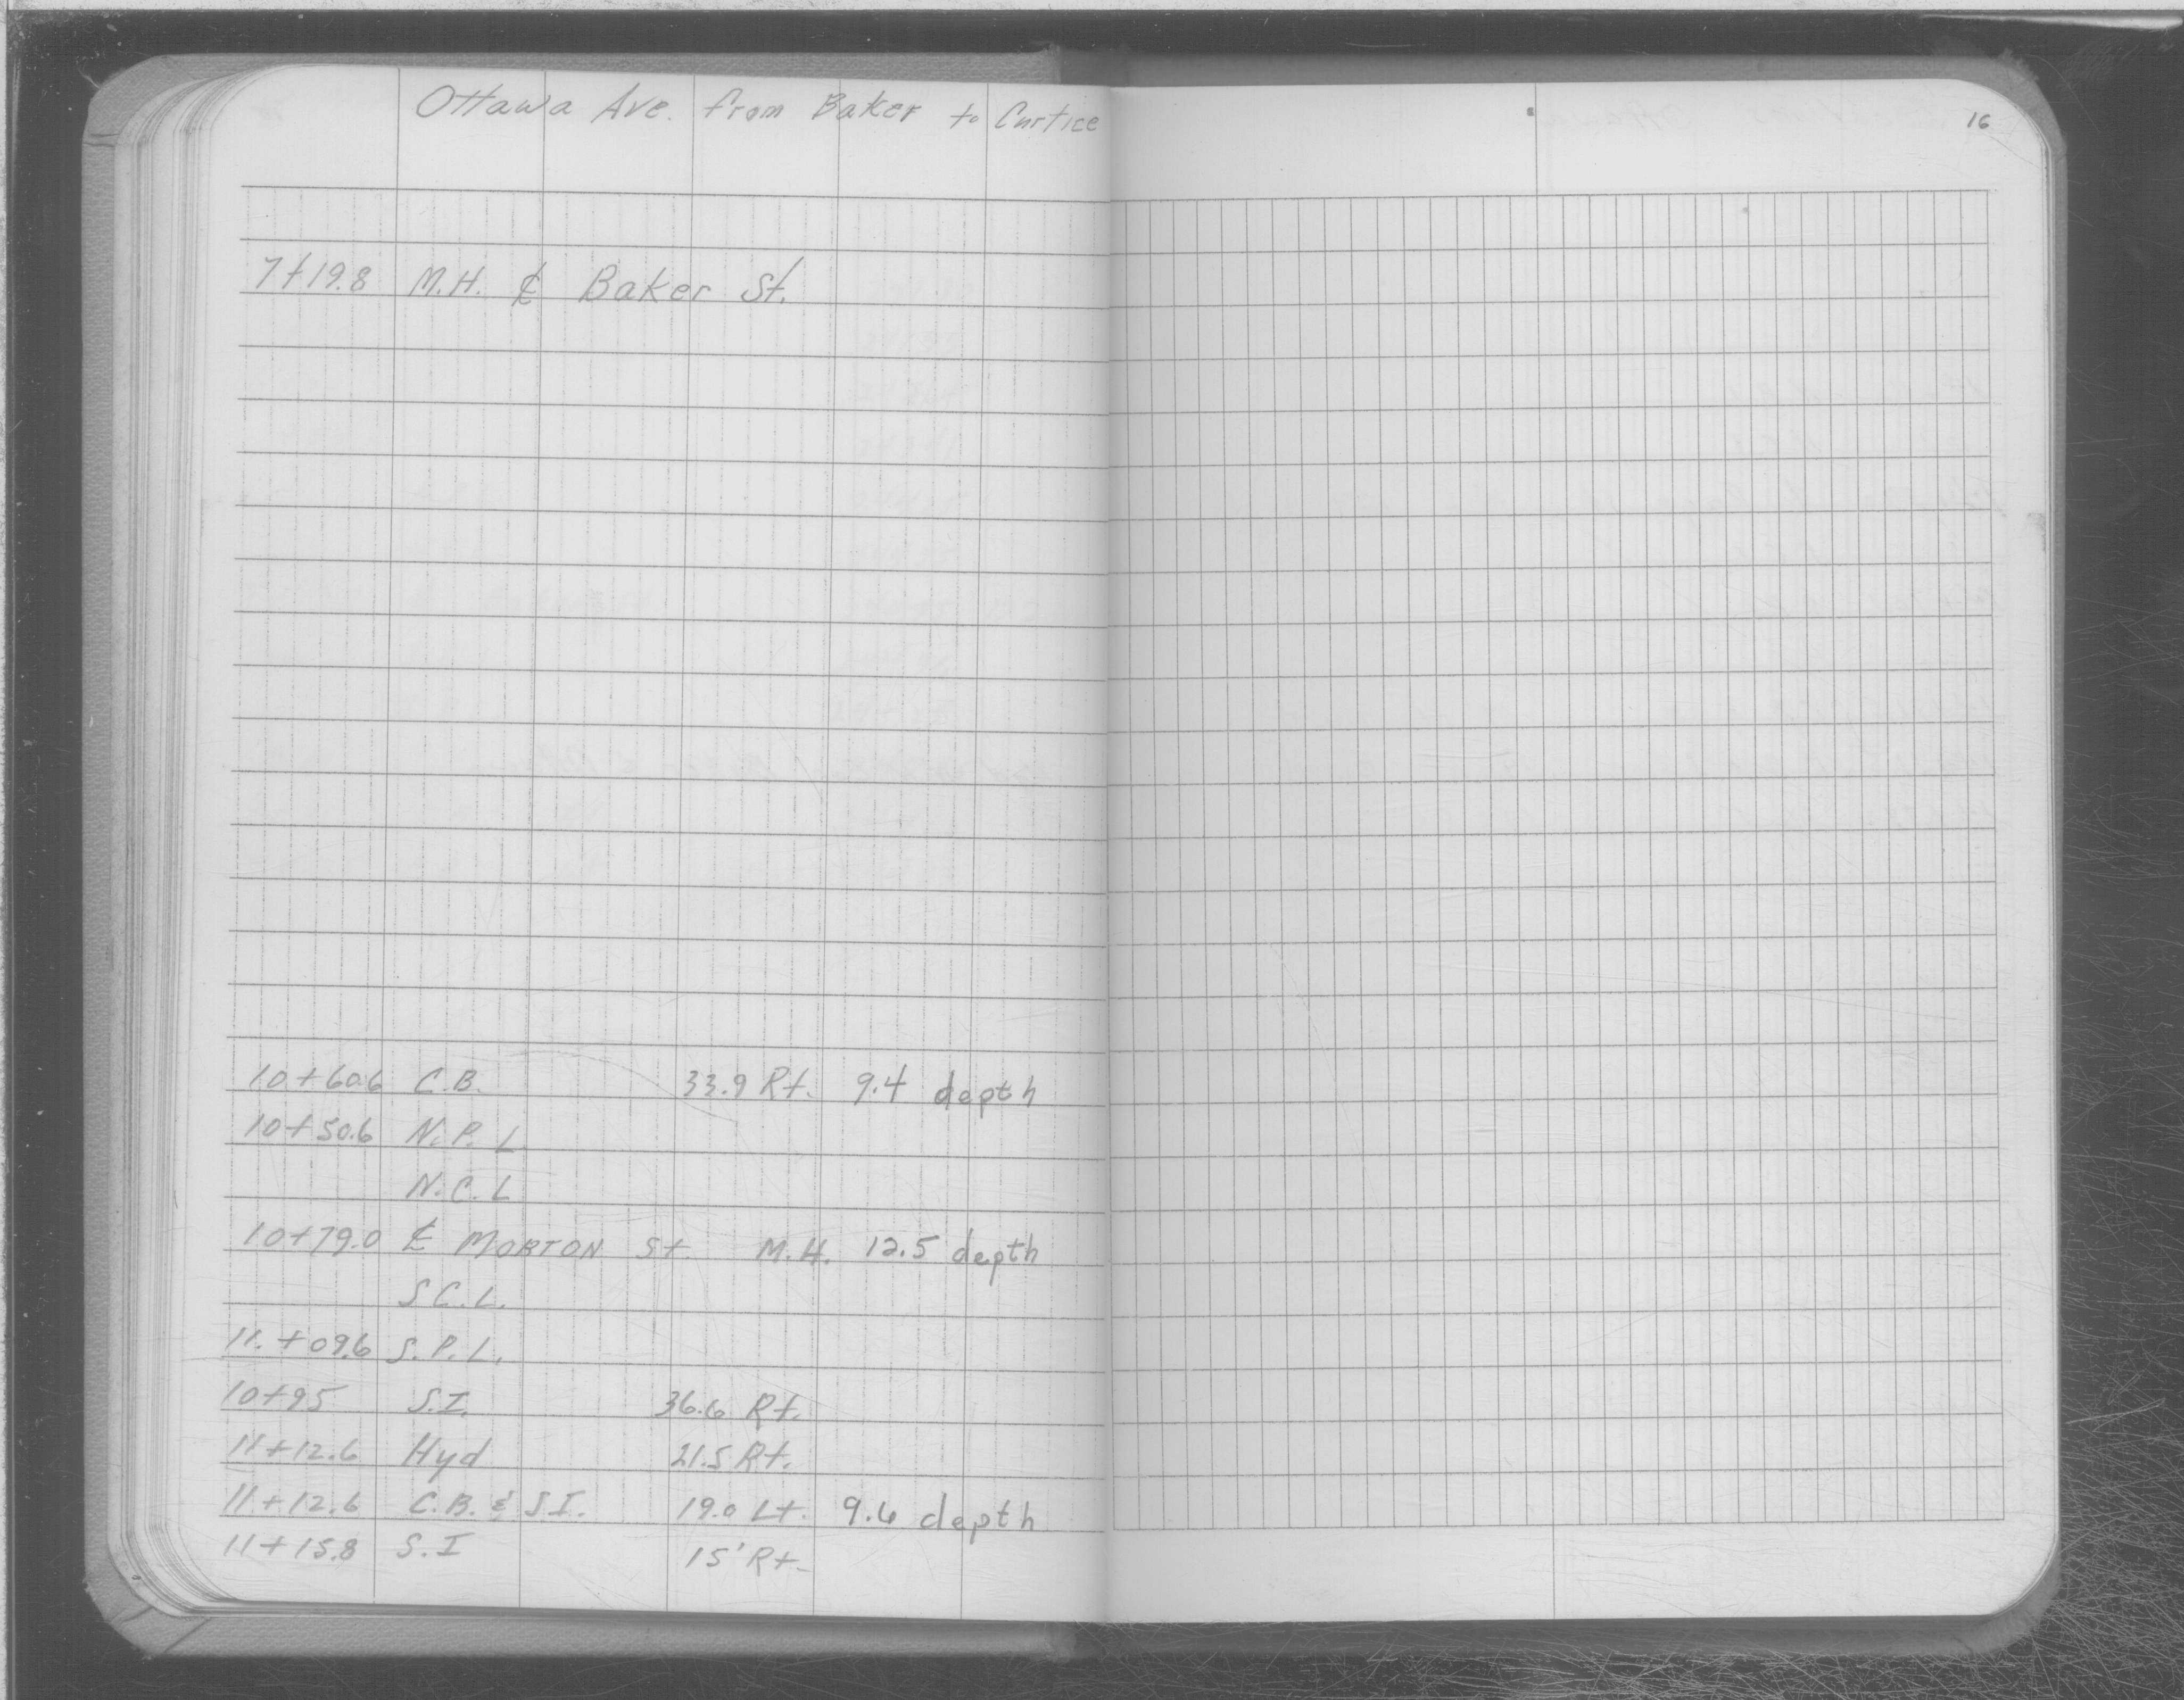 Ottawa Ave. from Baker to Curtice
16
7+19.8 M.H. ℄ Baker St.
10+60.6 C.B. 33.9 Rt. 9.4 depth
10+50.6 N.P.L.
N.C.L
10+79.0 ℄ MORTON St. M.H. 12.5 depth
S.C.L.
11.+09.6 S.P.L.
10+95 S.I. 36.6 Rt.
11+12.6 Hyd 21.5 Rt.
11+12.6 C.B. & S.I. 19.0 Lt. 9.6 depth
11+15.8 S.I 15' Rt.